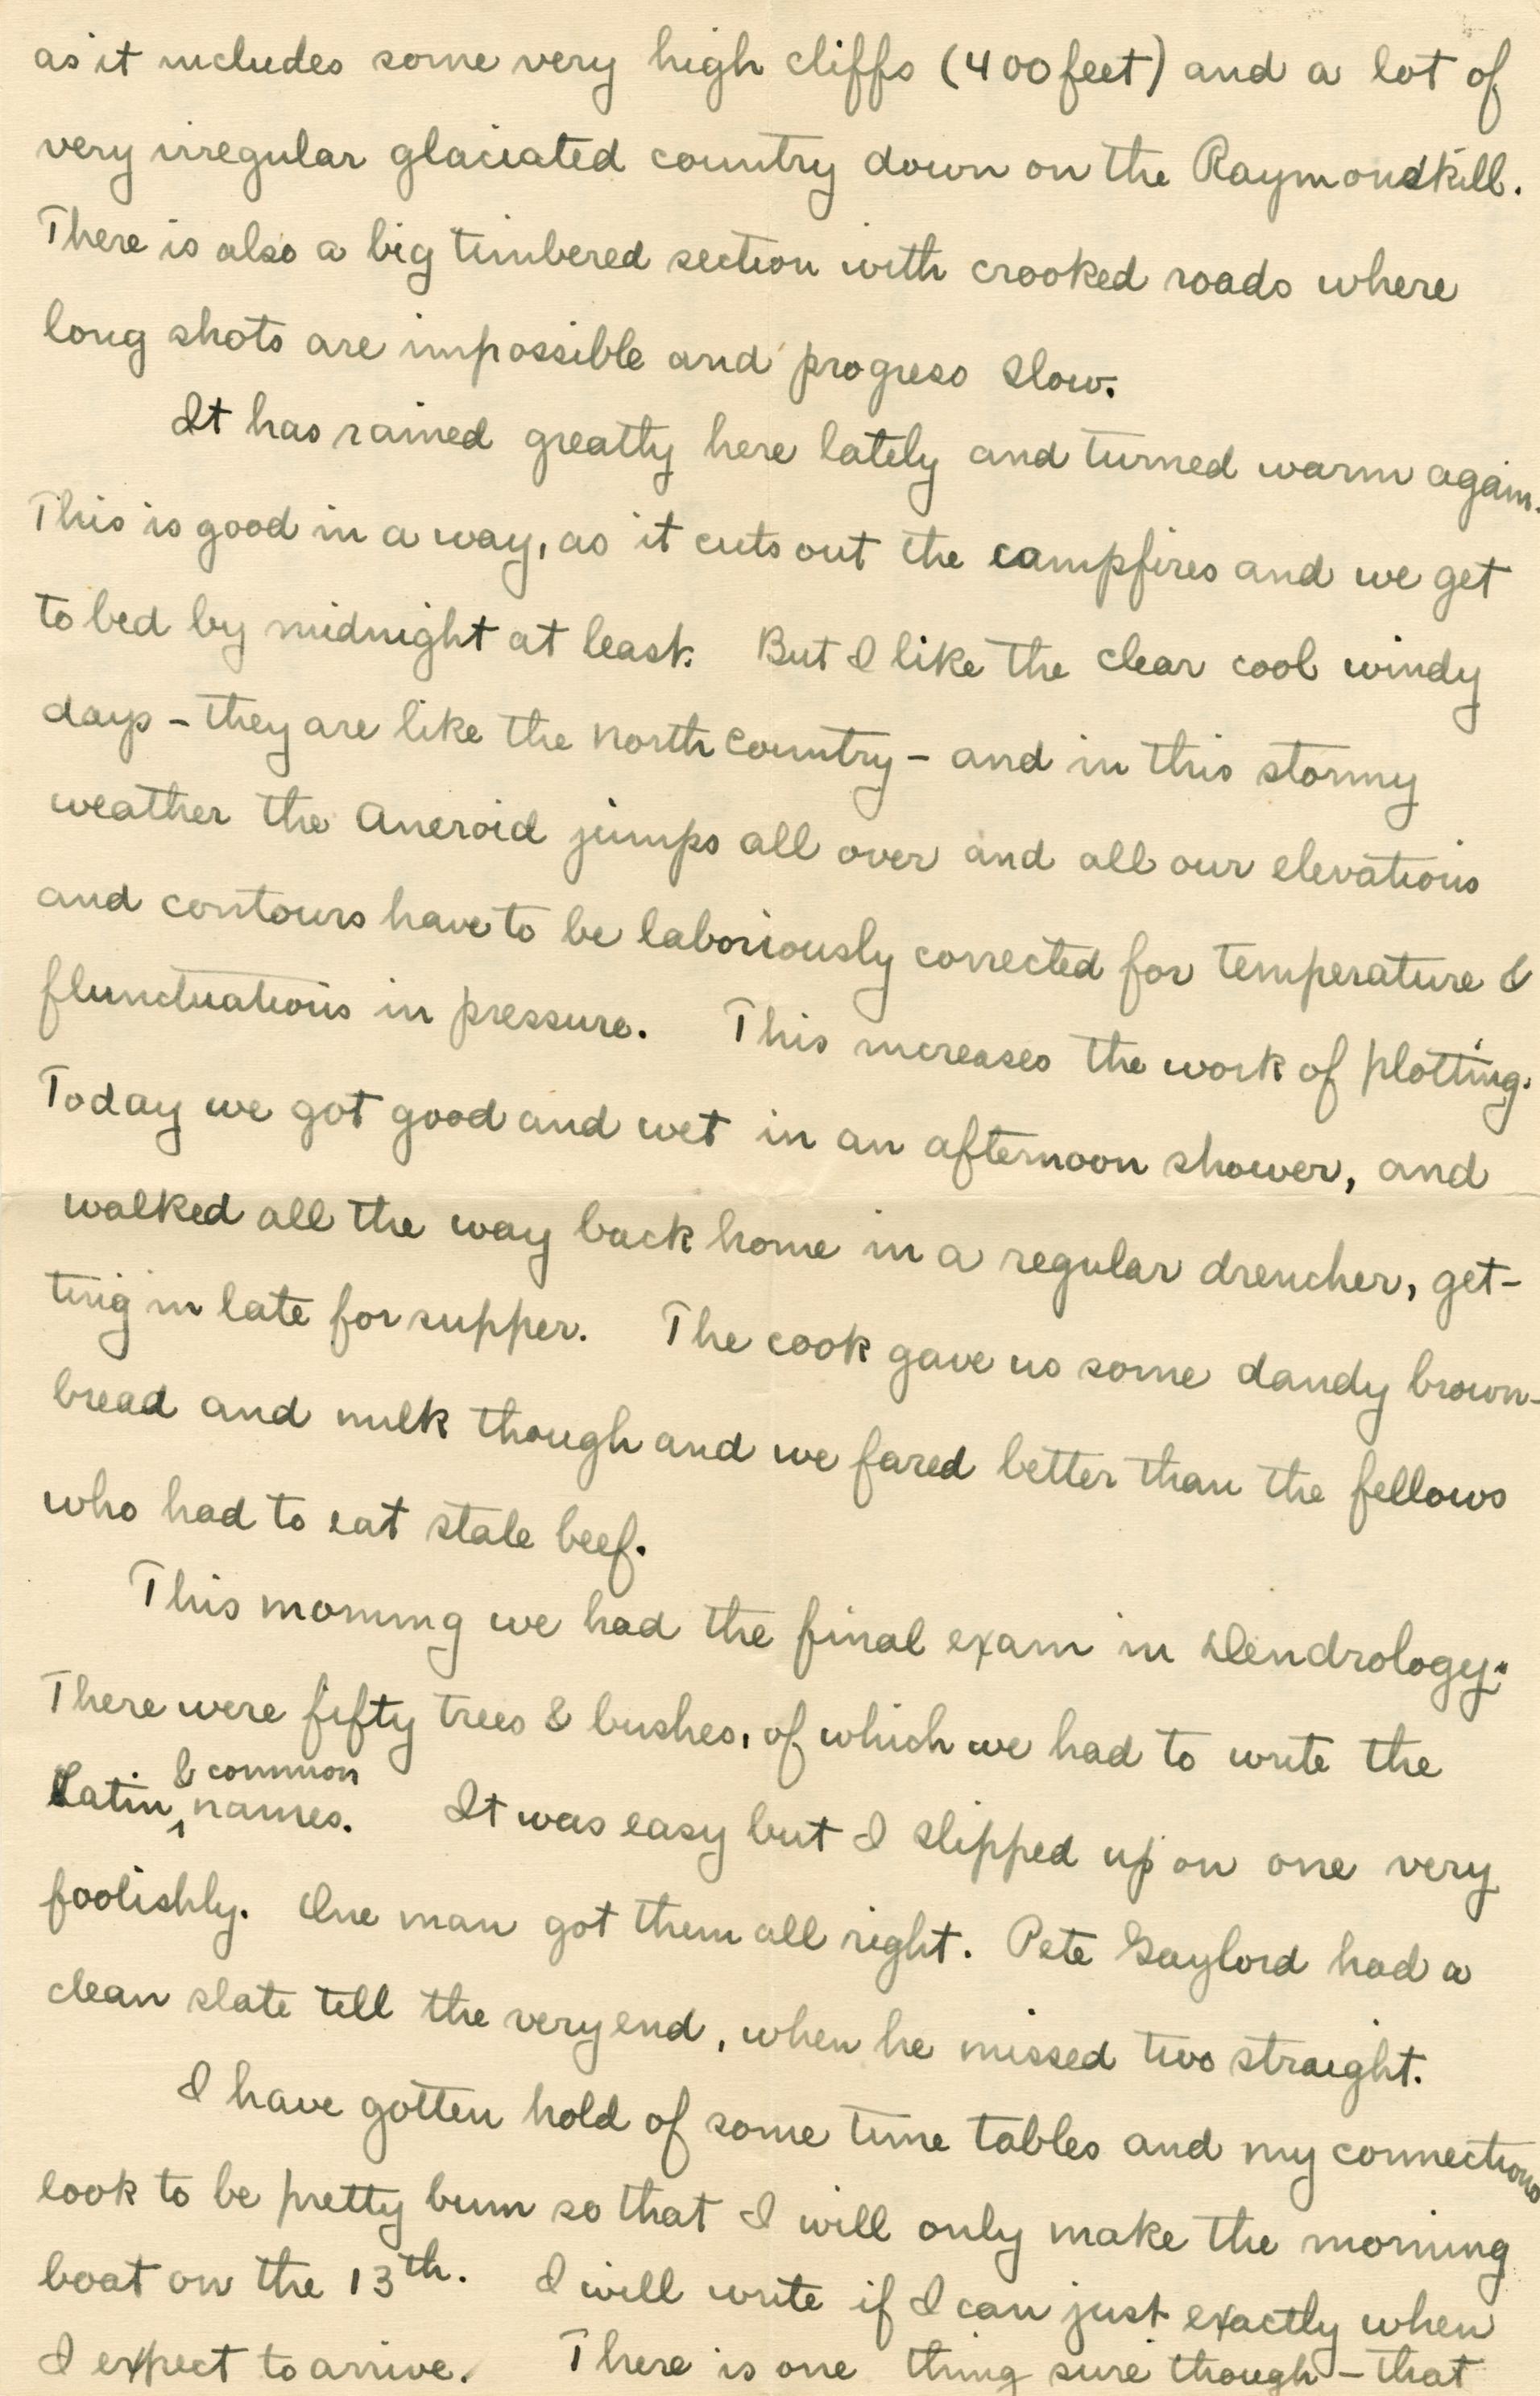 as it includes some very high cliffs (400 feet) and a lot of
very irregular glaciated country down on the Raymondskill.
There is also a big timbered section with crooked roads where
long shots are impossible and progress slow.
It has rained greatly here lately and turned warm again.
This is good in a way, as it cuts out the campfires and we get
to bed by midnight at least. But I like the clear cool windy
days – they are like the north country – and in this stormy
weather the aneroid jumps all over and all our elevations
and contours have to be laboriously corrected for temperature &
flunctuations in pressure. This increases the work of plotting.
Today we got good and wet in an afternoon shower, and
walked all the way back home in a regular drencher, get-
ting in late for supper. The cook gave us some dandy brown-
bread and milk though and we fared better than the fellows
who had to eat stale beef.
This morning we had the final exam in Dendrology.
There were fifty trees & bushes, of which we had to write the
Latin & common names. It was easy but I slipped up on one very
foolishly. One man got them all right. Pete Gaylord had a
clean slate till the very end, when he missed two straight.
I have gotten hold of some time tables and my connections
look to be pretty bum so that I will only make the morning
boat on the 13th. I will write if I can just exactly when
I expect to arrive. There is one thing sure though – that